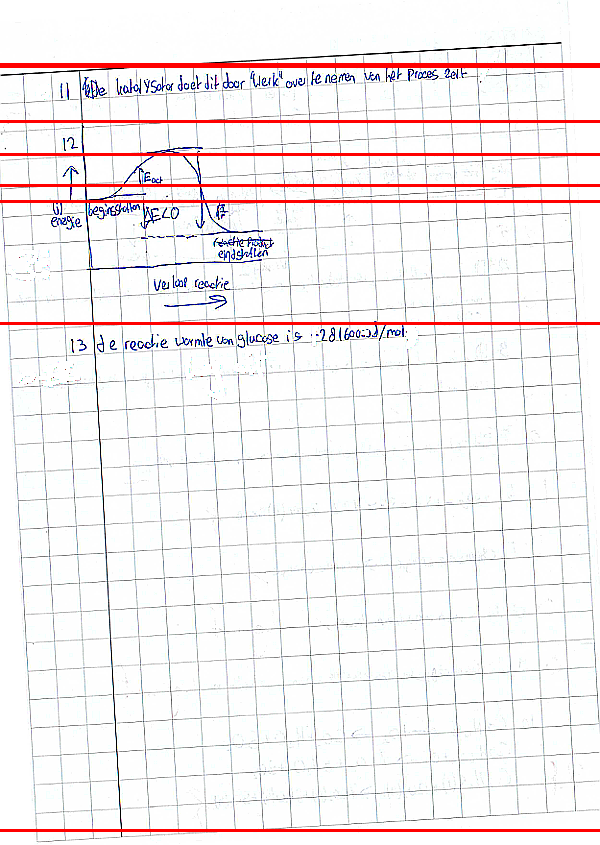 11 De katalysator doet dit door "werk" over te nemen van het proces zelf.
12
Eact
beginstoffen
ΔE<0
(j)
energie
eindstoffen
verloop reactie
13 de reactie warmte van glucose is